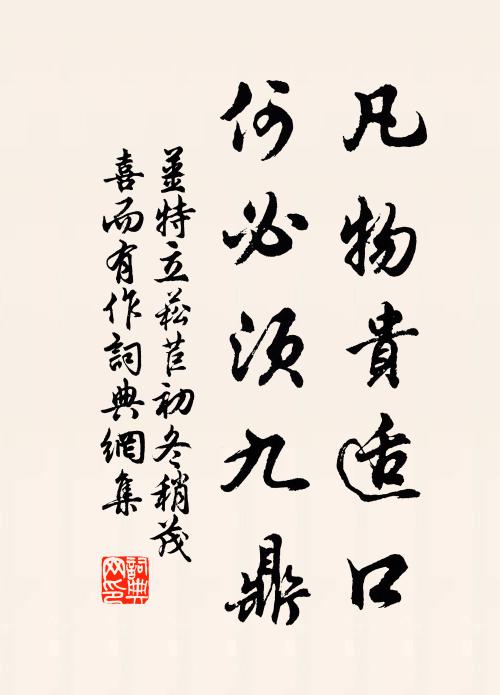 凡物貴适口
何必須九鼎
姜特立菘苣初冬稍茂
喜而有作詞典網集
詞典網印